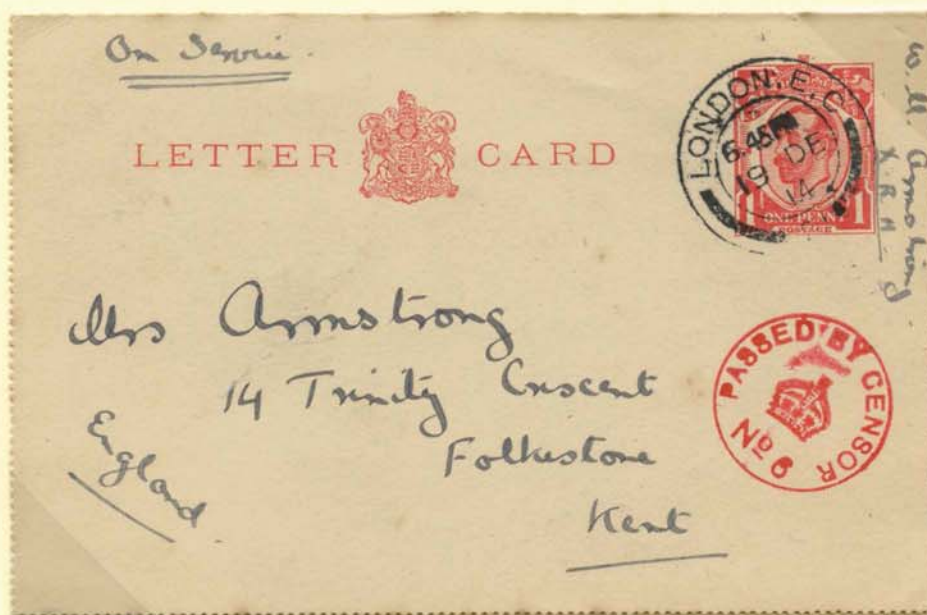 On Service.
LETTER CARD
LONDON. E. C.
6.45 PM
19 DE
14
1 ONE PENNY 1
POSTAGE
W. M. Armstrong
X R H
Mrs Armstrong
14 Trinity Crescent
Folkestone
Kent
England
PASSED BY CENSOR
No 6